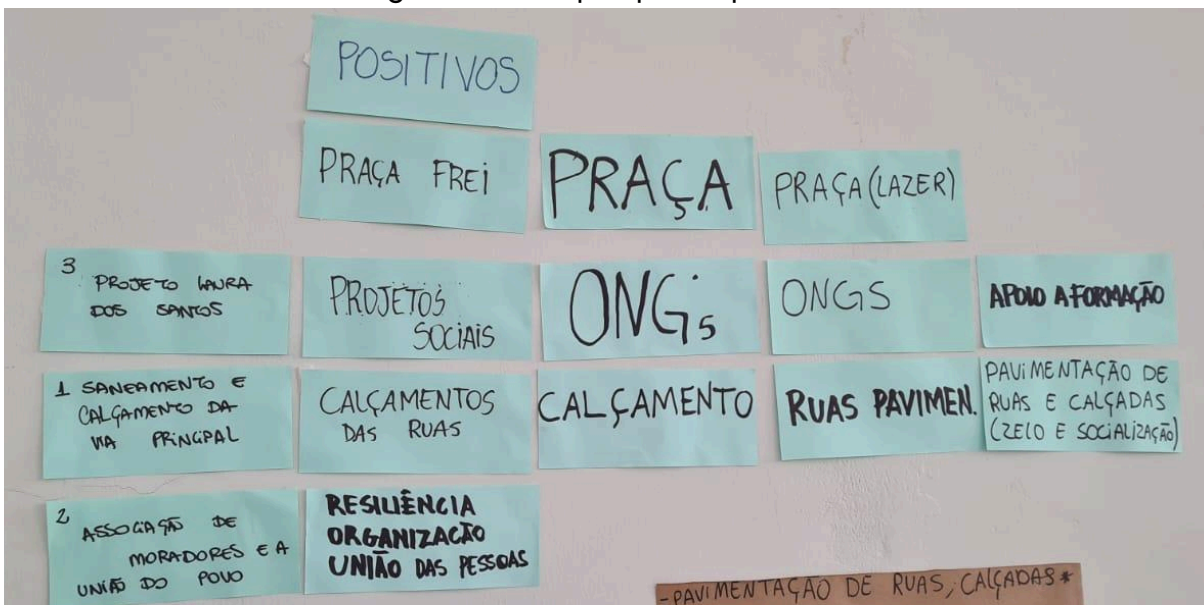 POSITIVOS
PRAÇA FREI
PRAÇA
PRAÇA (LAZER)
3
PROJETO LAURA
DOS SANTOS
PROJETOS
SOCIAIS
ONGs
ONGS
APOIO A FORMAÇÃO
1 SANEAMENTO E
CALÇAMENTO DA
VIA PRINCIPAL
CALÇAMENTOS
DAS RUAS
CALÇAMENTO
RUAS PAVIMEN.
PAVIMENTAÇÃO DE
RUAS E CALÇADAS
(ZELO E SOCIALIZAÇÃO)
2
ASSOCIAÇÃO DE
MORADORES E A
UNIÃO DO POVO
RESILIÊNCIA
ORGANIZAÇÃO
UNIÃO DAS PESSOAS
-PAVIMENTAÇÃO DE RUAS, CALÇADAS*